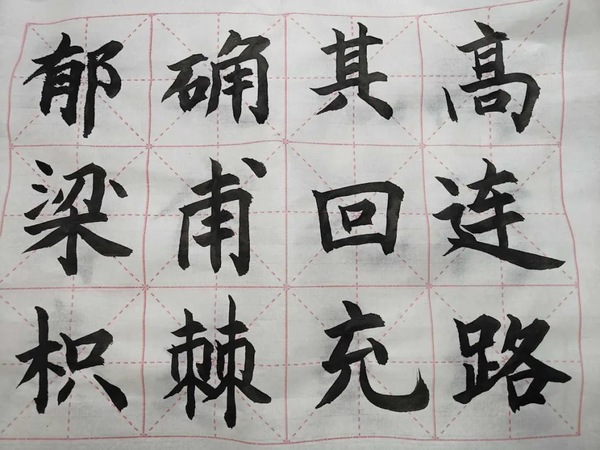 郁确其高
梁甫回连
枳棘充路